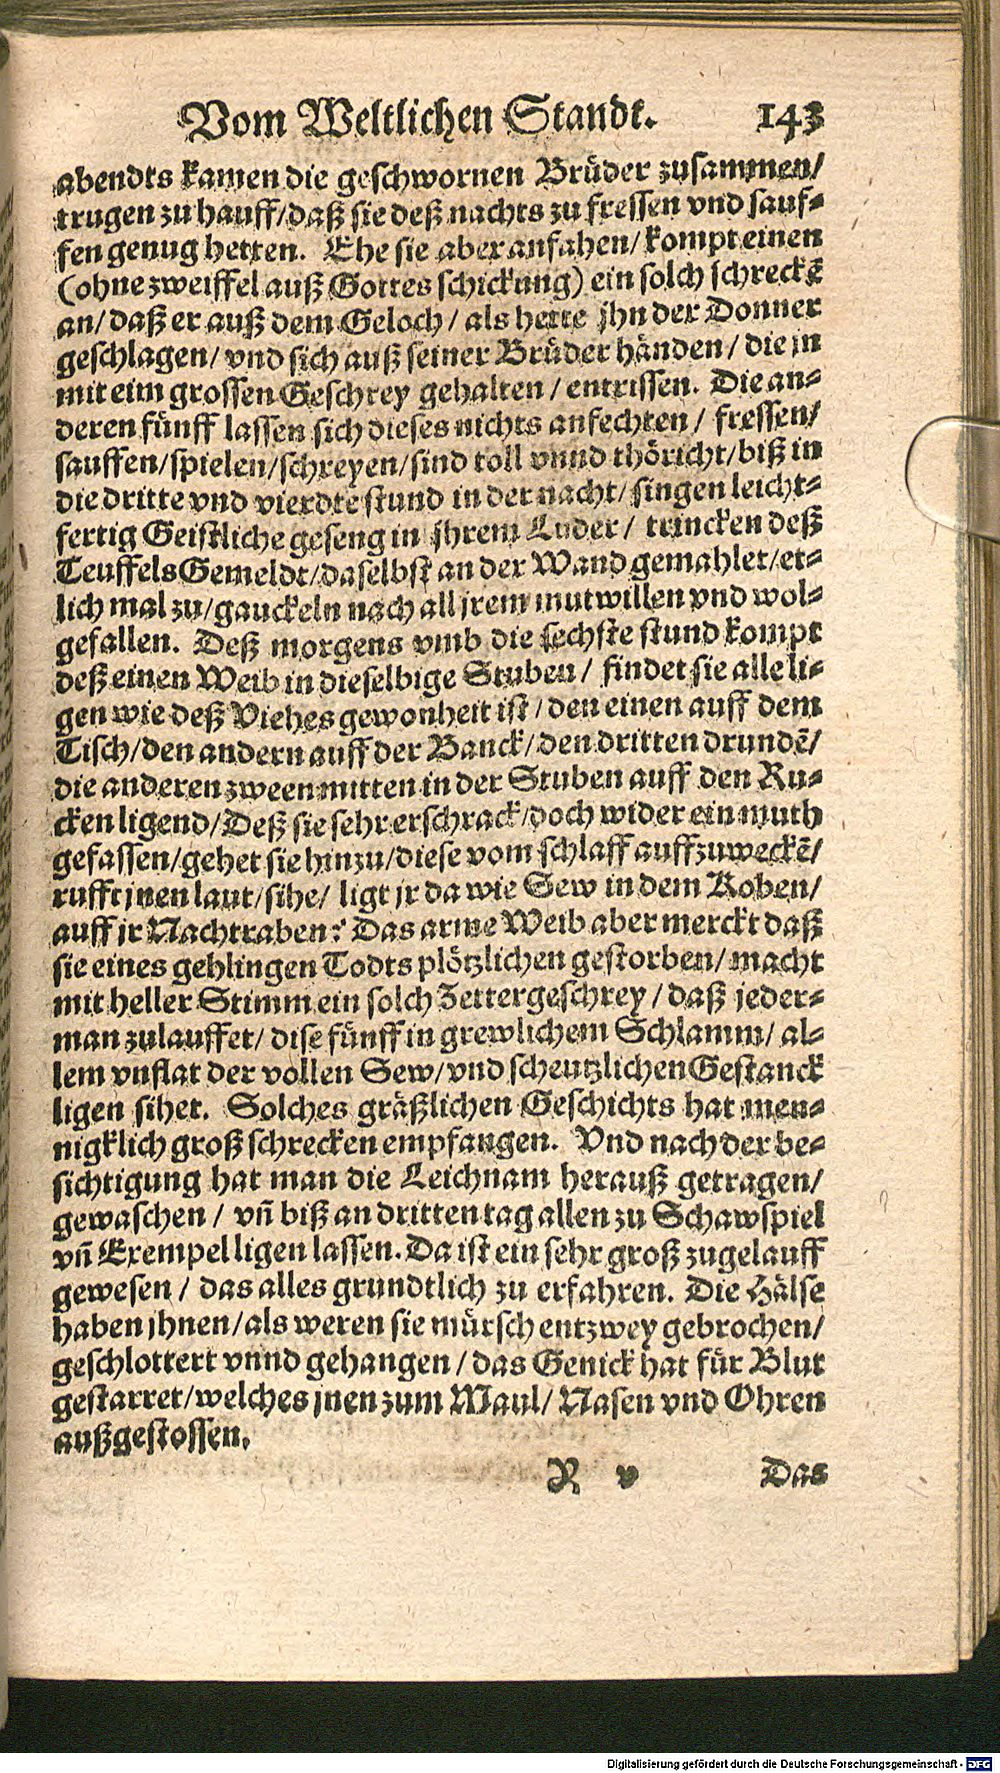 Vom Weltlichen Standt. 143
abendts kamen die geschwornen Brüder zusammen/
trugen zu hauff/daß sie deß nachts zu fressen vnd sauf-
fen genug hetten. Ehe sie aber anfahen/ kompt einen
(ohne zweiffel auß Gottes schickung) ein solch schreckẽ
an/ daß er auß dem Geloch / als hette jhn der Donner
geschlagen/ vnd sich auß seiner Brüder händen / die jn
mit eim grossen Geschrey gehalten / entrissen. Die an-
deren fünff lassen sich dieses nichts anfechten / fressen/
sauffen/spielen/schreyen/sind toll vnnd thöricht/biß in
die dritte vnd vierdte stund in der nacht/ singen leicht-
fertig Geistliche geseng in jhrem Luder / trincken deß
Teuffels Gemeldt/daselbst an der Wand gemahlet/et-
lich mal zu/gauckeln nach all jrem mutwillen vnd wol-
gefallen. Deß morgens vmb die sechste stund kompt
deß einen Weib in dieselbige Stuben / findet sie alle li-
gen wie deß Viehes gewonheit ist / den einen auff dem
Tisch/den andern auff der Banck/den dritten drundẽ/
die anderen zween mitten in der Stuben auff den Ru-
cken ligend/Deß sie sehr erschrack/doch wider ein muth
gefassen/gehet sie hinzu/diese vom schlaff auffzuweckẽ/
rufft jnen laut/sihe/ ligt jr da wie Sew in dem Koben/
auff jr Nachtraben? Das arme Weib aber merckt daß
sie eines gehlingen Todts plötzlichen gestorben/ macht
mit heller Stimm ein solch Zettergeschrey / daß jeder-
man zulauffet/ dise fünff in grewlichem Schlamm/ al-
lem vnflat der vollen Sew/vnd scheutzlichen Gestanck
ligen sihet. Solches gräßlichen Geschichts hat men-
nigklich groß schrecken empfangen. Vnd nach der be-
sichtigung hat man die Leichnam herauß getragen/
gewaschen / vñ biß an dritten tag allen zu Schawspiel
vñ Exempel ligen lassen. Da ist ein sehr groß zugelauff
gewesen / das alles grundtlich zu erfahren. Die Hälse
haben jhnen/als weren sie mürsch entzwey gebrochen/
geschlottert vnnd gehangen / das Genick hat für Blut
gestarret/welches jnen zum Maul/ Nasen vnd Ohren
außgestossen.
R v Das
Digitalisierung gefördert durch die Deutsche Forschungsgemeinschaft - DFG